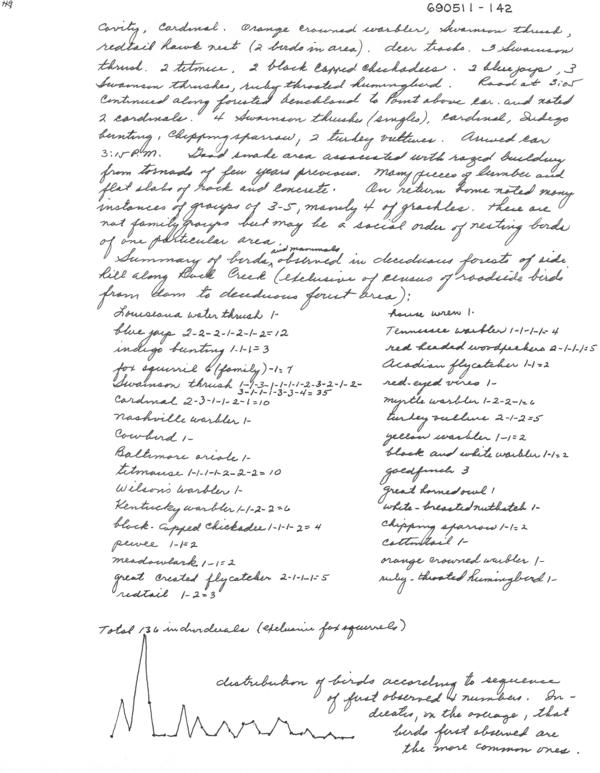 690511-142
cavity, cardinal. Orange crowned warbler, Swainson thrush,
redtail hawk nest (2 birds in area). deer tracks. 3 Swainson
thrush. 2 titmice, 2 black capped chickadees. 2 bluejays, 3
Swainson thrushes, ruby throated humingbird. Road at 3:05
Continued along forested benchland to Point above car and noted
2 cardinals. 4 Swainson thrushes (singles), cardinal, Indigo
bunting, Chipping sparrow, 2 turkey vultures. Arrived car
3:15 P.M. Good snake area associated with razed building
from tornado of few years previous. Many pieces of lumber and
flat slabs of rock and concrete. On return home noted many
instances of groups of 3-5, mainly 4 of grackles. These are
not family groups but may be a social order of nesting birds
of one particular area.
Summary of birds, and mammals observed in deciduous forests of side
hill along Rock Creek (exclusive of census of roadside birds
from dam to deciduous forest area):
Louiseana water thrush 1-
blue jays 2-2-2-1-2-1-2=12
indigo bunting 1-1-1=3
fox squirril 6 (family)-1=7
Swainson thrush 1-7-3-1-1-1-1-2-3-2-1-2-
3-1-1-1-3-3-4=35
Cardinal 2-3-1-1-2-1=10
Nashville warbler 1-
Cowbird 1-
Baltimore oriole 1-
titmouse 1-1-1-1-2-2-2=10
Wilson's warbler 1-
Kentucky warbler 1-1-2-2=6
black-capped chickadee 1-1-2=4
pewee 1-1=2
meadowlark 1-1=2
great crested flycatcher 2-1-1-1=5
redtail 1-2=3
house wren 1-
Tennessee warbler 1-1-1-1-4
red headed woodpeckers 2-1-1-1=5
Acadian flycatcher 1-1=2
red-eyed vireo 1-
myrtle warbler 1-2-2-1=6
turkey vulture 2-1-2=5
yellow warbler 1-1=2
black and white warbler 1-1=2
goldfinch 3
great horned owl 1
white-breasted nuthatch 1-
chipping sparrow 1-1=2
cottontail 1-
orange crowned warbler 1-
ruby-throated humingbird 1-
Total 136 individuals (exclusive fox squirrels)
distribution of birds according to sequence
of first observed & numbers. In-
dicates, on the average, that
birds first observed are
the more common ones.